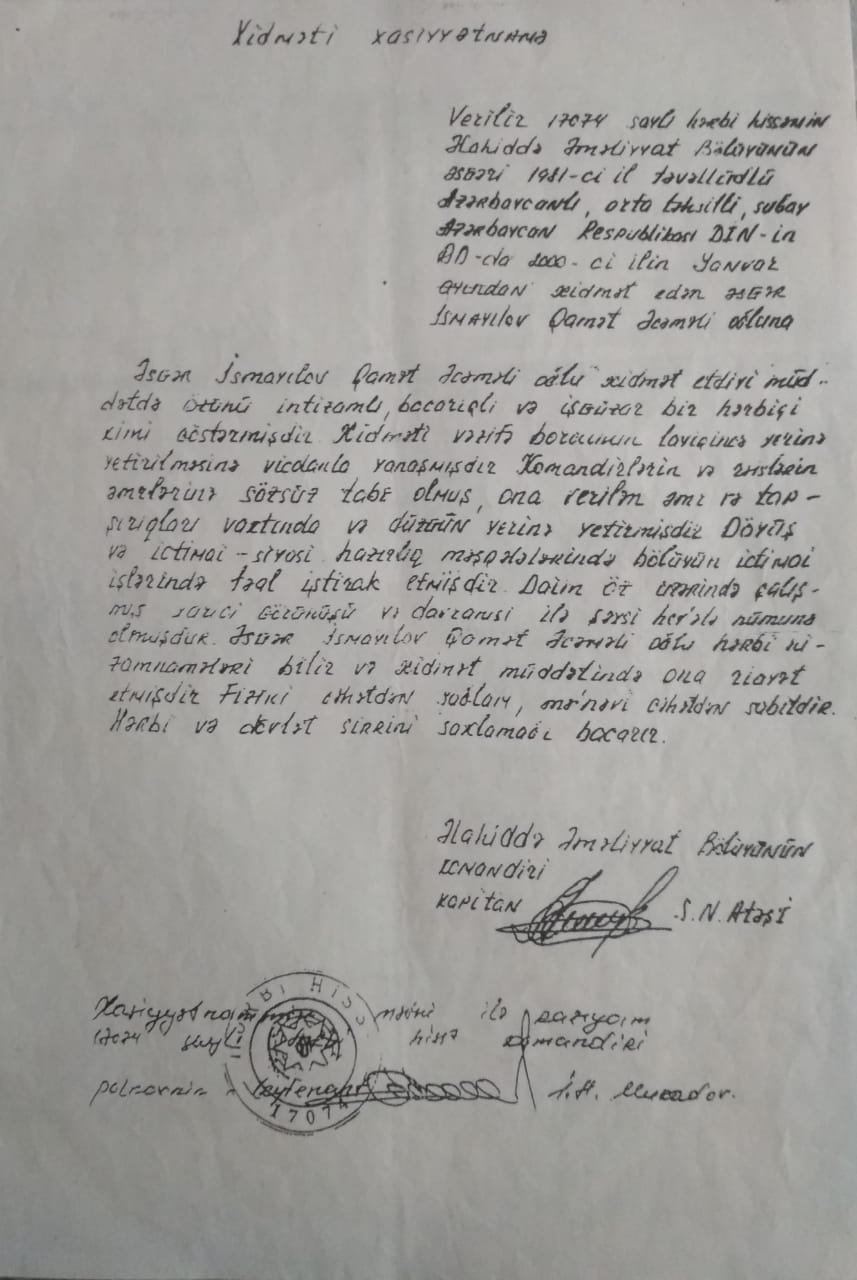 Xidməti xasiyyətnamə
Verilir 17074 saylı hərbi hissənin
Əlahiddə Əməliyyat Bölüyünün
əsgəri 1981-ci il təvəllüdlü
Azərbaycanlı, orta təhsilli, subay
Azərbaycan Respublikası DİN-in
DQ-da 2000-ci ilin Yanvar
ayından xidmət edən əsgər
İsmayılov Qamət Əcəməli oğluna
Əsgər İsmayılov Qamət Əcəməli oğlu xidmət etdiyi müd-
dətdə özünü intizamlı, bacarıqlı və işgüzar bir hərbiçi
kimi göstərmişdir Xidməti vəzifə borcunun layiqincə yerinə
yetirilməsinə vicdanla yanaşmışdır Komandirlərin və rəislərin
əmrlərinə sözsüz tabe olmuş, ona verilən əmr və tap-
şırıqları vaxtında və düzgün yerinə yetirmişdir Döyüş
və ictimai-siyasi hazırlıq məşğələlərində bölüyün ictimai
işlərində fəal iştirak etmişdir. Daim öz üzərində çalış-
mış xarici görünüşü və davranışı ilə şəxsi hey'ətə nümunə
olmuşdur. Əsgər İsmayılov Qamət Əcəməli oğlu hərbi ni-
zamnamələri bilir və xidmət müddətində ona riayət
etmişdir Fiziki cəhətdən sağlam, mə'nəvi cəhətdən sabitdir.
Hərbi və devlət sirrini saxlamağı bacarır.
Əlahiddə Əməliyyat Bölüyünün
komandiri
kapitan S.N. Atəşi
Xasiyyətnamənin məzmunu ilə razıyam
17074 saylı hərbi hissə komandiri
polkovnik-leytenant İ.H. Muradov.
HƏRBİ HİSSƏ
17074